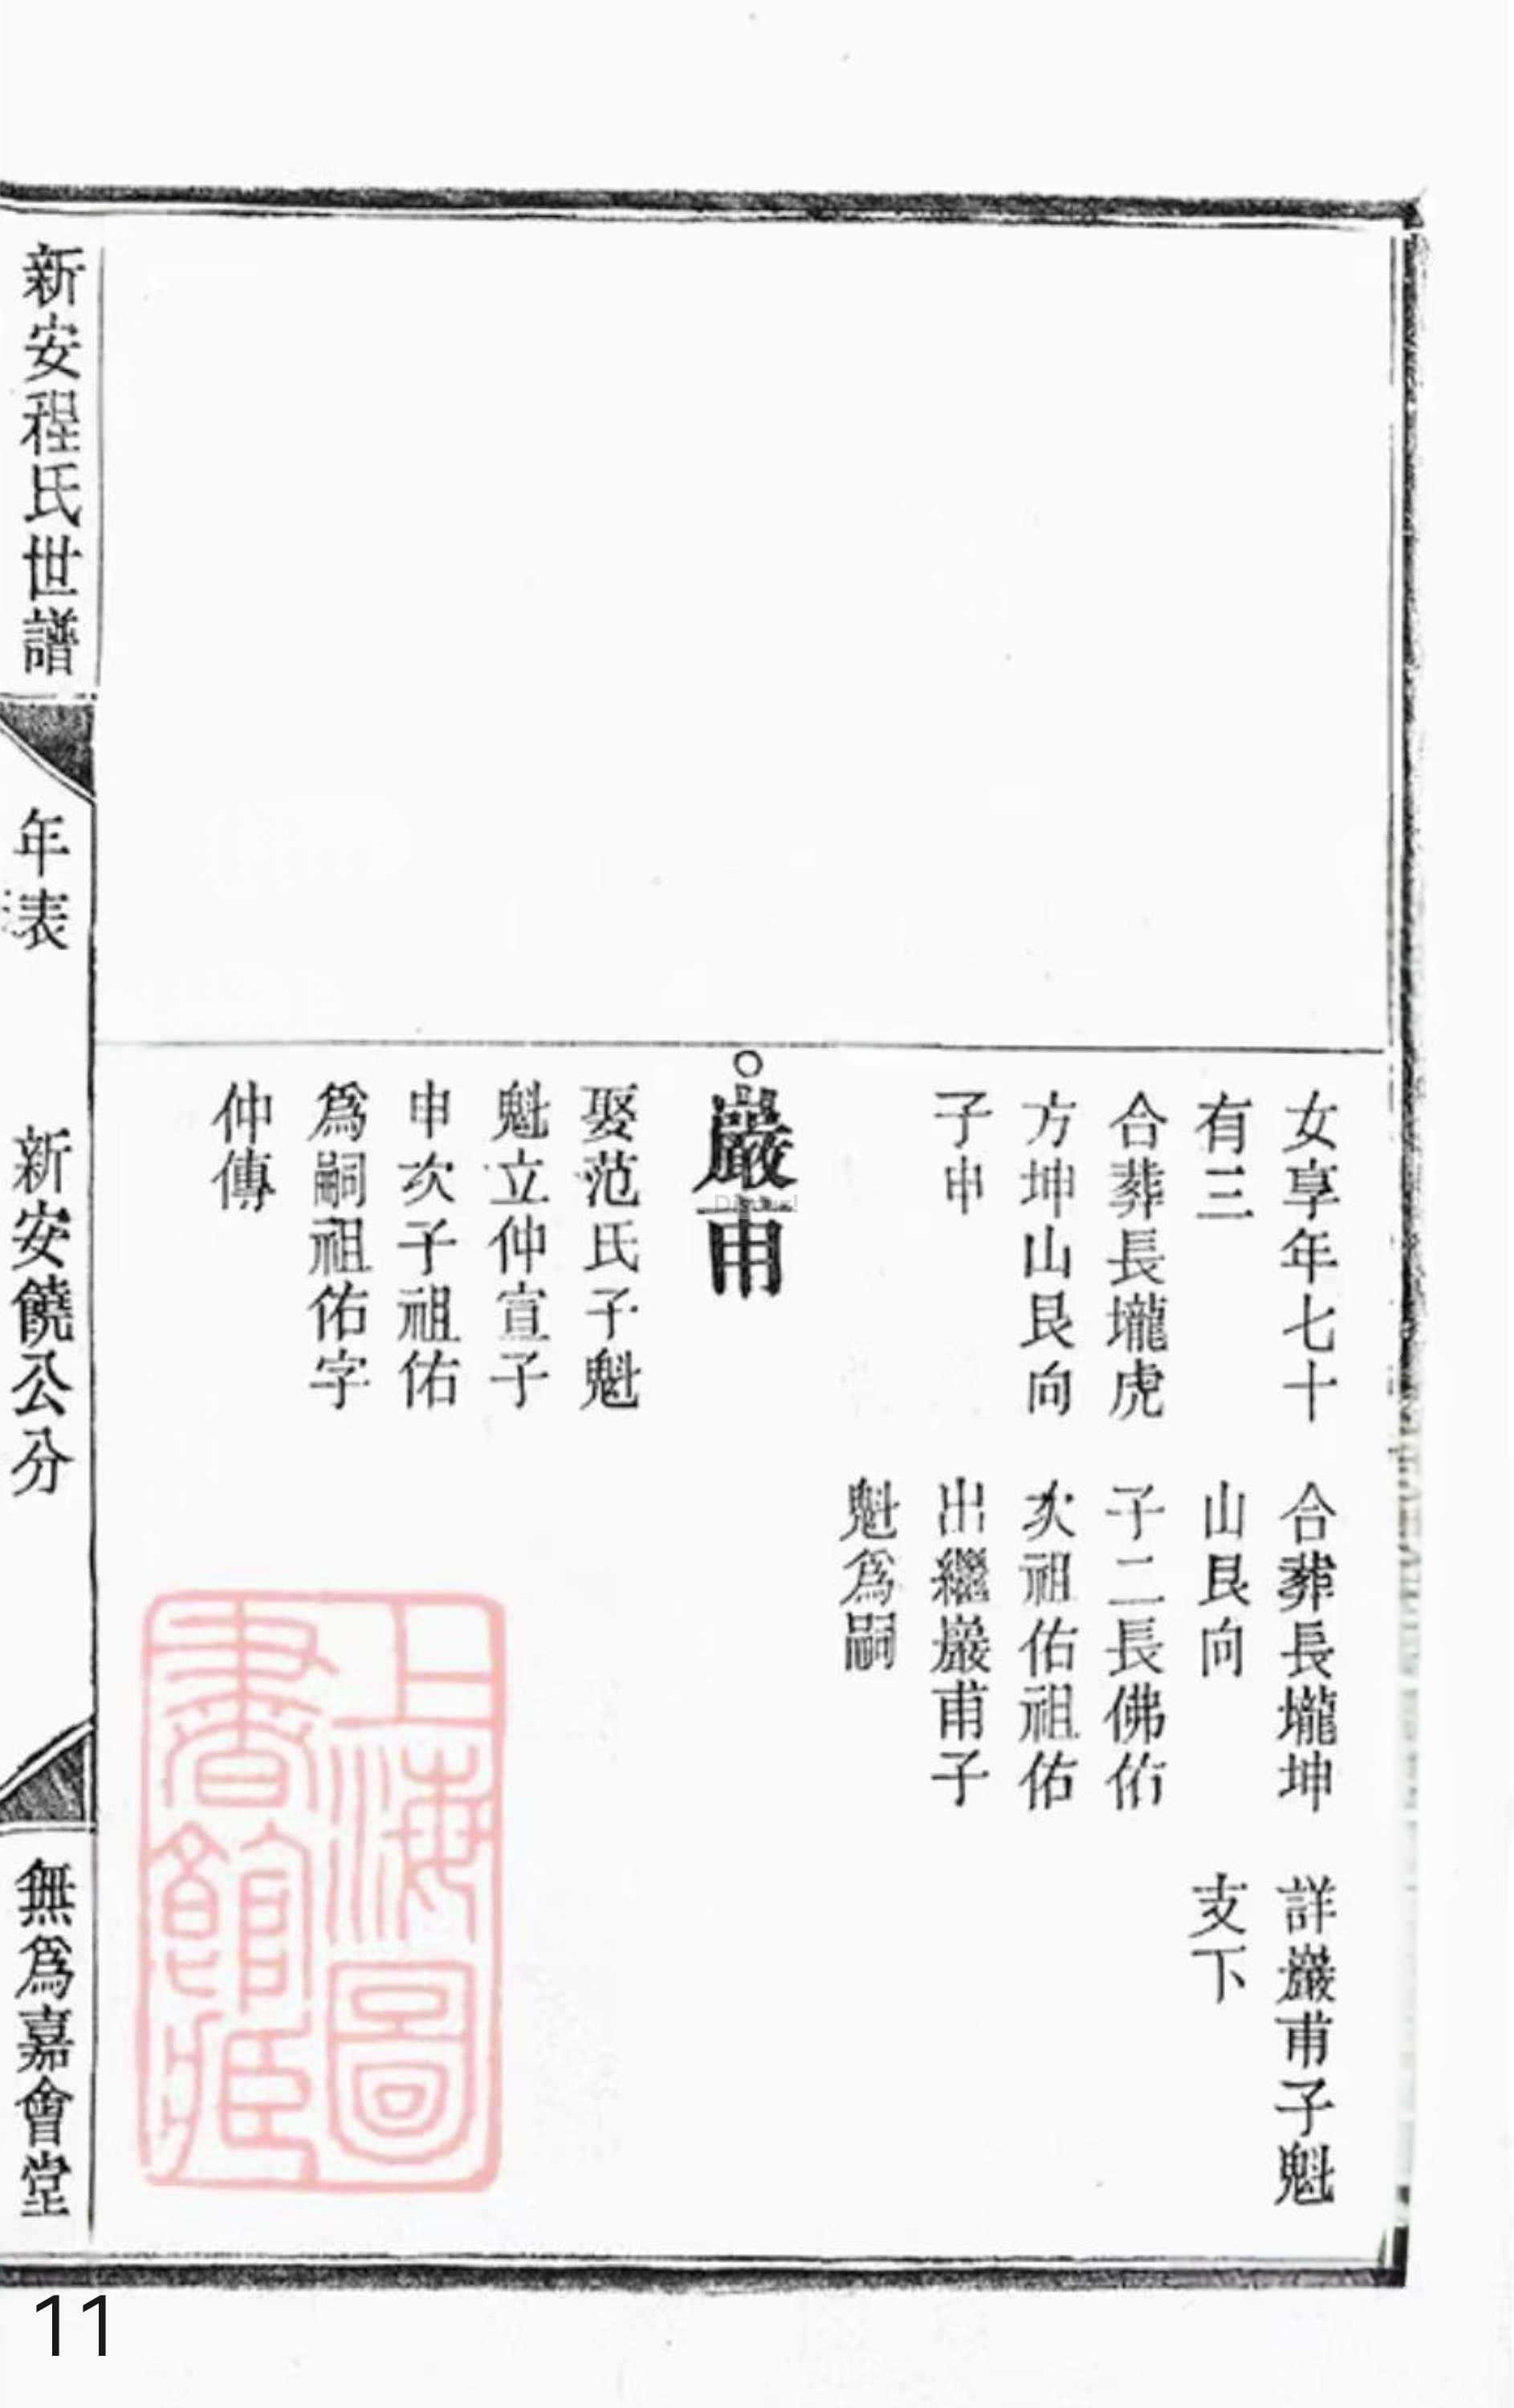 女享年七十
有三
合葬長壠虎
方坤山艮向
子申
合葬長壠坤
山艮向
子二長佛佑
次祖佑祖佑
出繼巖甫子
魁爲嗣
詳巖甫子魁
支下
巖甫
娶范氏子魁
魁立仲宣子
申次子祖佑
爲嗣祖佑字
仲傳
新安程氏世譜
年表
新安饒公分
無爲嘉會堂
上海圖
書館藏
11